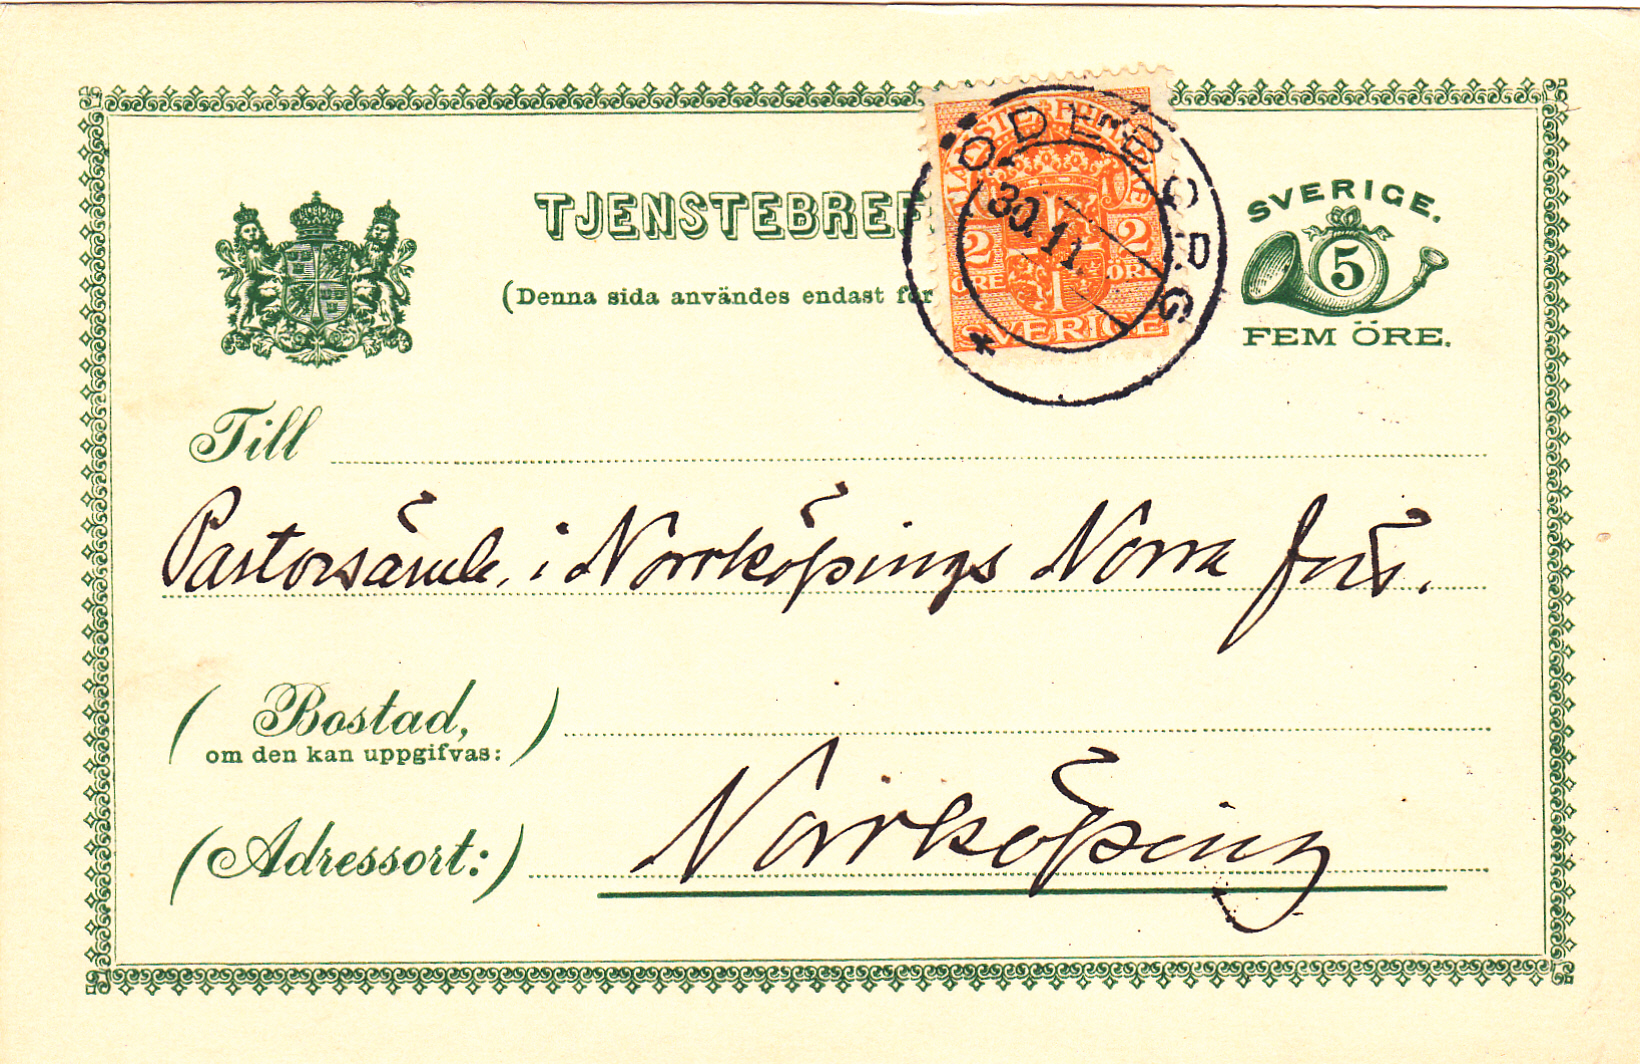 TJENSTEBREF
(Denna sida användes endast för
TJÄNSTE FRIMÄRKE
2 2
ÖRE ÖRE
SVERIGE
30.11
SVERIGE.
5
FEM ÖRE.
Till
Pastorsämb. i Norrköpings Norra förs.
(Bostad,
om den kan uppgifvas:)
(Adressort:)
Norrköping